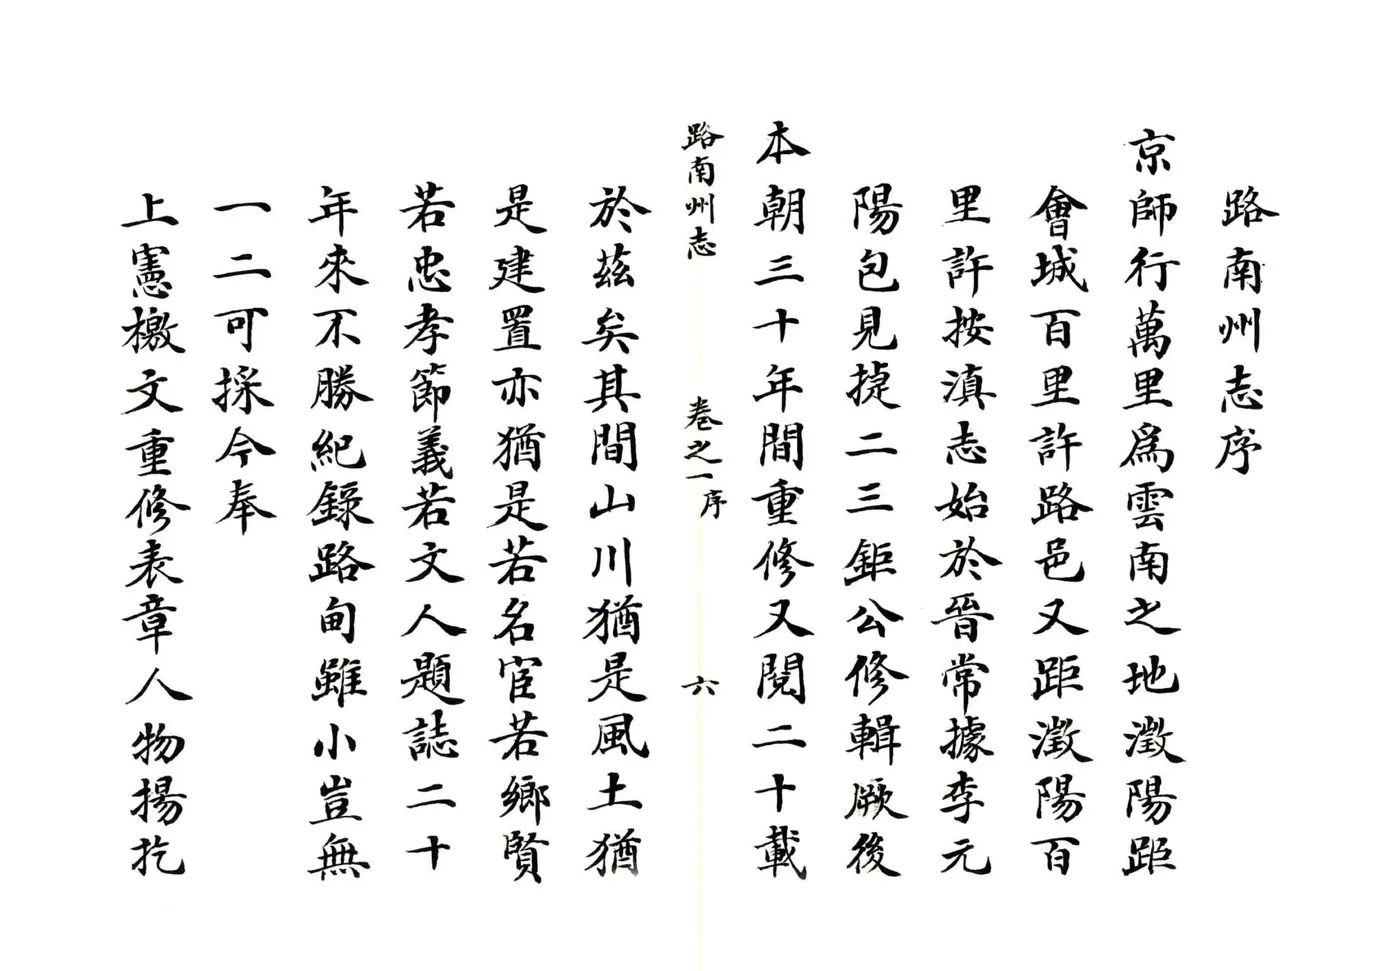 路南州志序
京師行萬里爲雲南之地澂陽距
會城百里許路邑又距澂陽百
里許按滇志始於晉常據李元
陽包見捷二三鉅公修輯厥後
本朝三十年間重修又閱二十載
路南州志 卷之一序 六
於茲矣其間山川猶是風土猶
是建置亦猶是若名宦若鄉賢
若忠孝節義若文人題誌二十
年來不勝紀錄路甸雖小豈無
一二可採今奉
上憲檄文重修表章人物揚扢